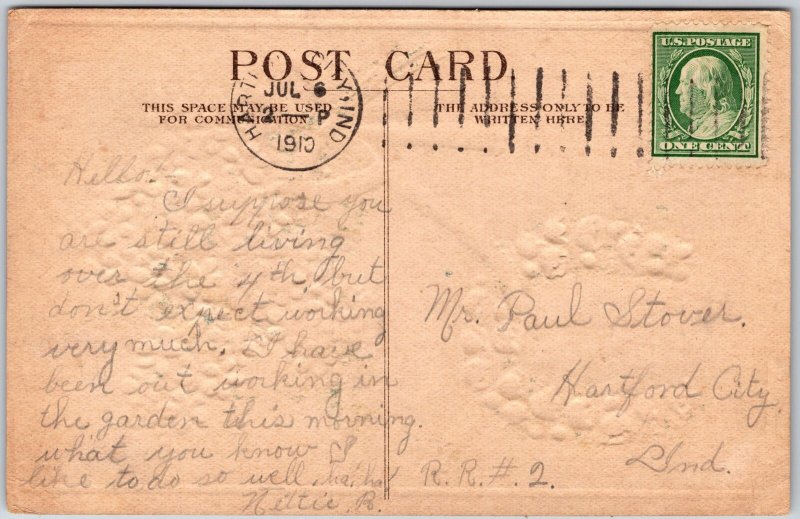 POST CARD
THIS SPACE MAY BE USED
FOR COMMUNICATION
THE ADDRESS ONLY TO BE
WRITTEN HERE.
HARTFORD CITY, IND
JUL 6
P
1910
U.S. POSTAGE
ONE CENT
Hello!
I suppose you
are still living
over the 4th, but
don't expect working
very much. I have
been out working in
the garden this morning.
what you know I
like to do so well, ha! ha!
Nettie R.
Mr. Paul Stover.
Hartford City
Ind.
R.R.#.2.